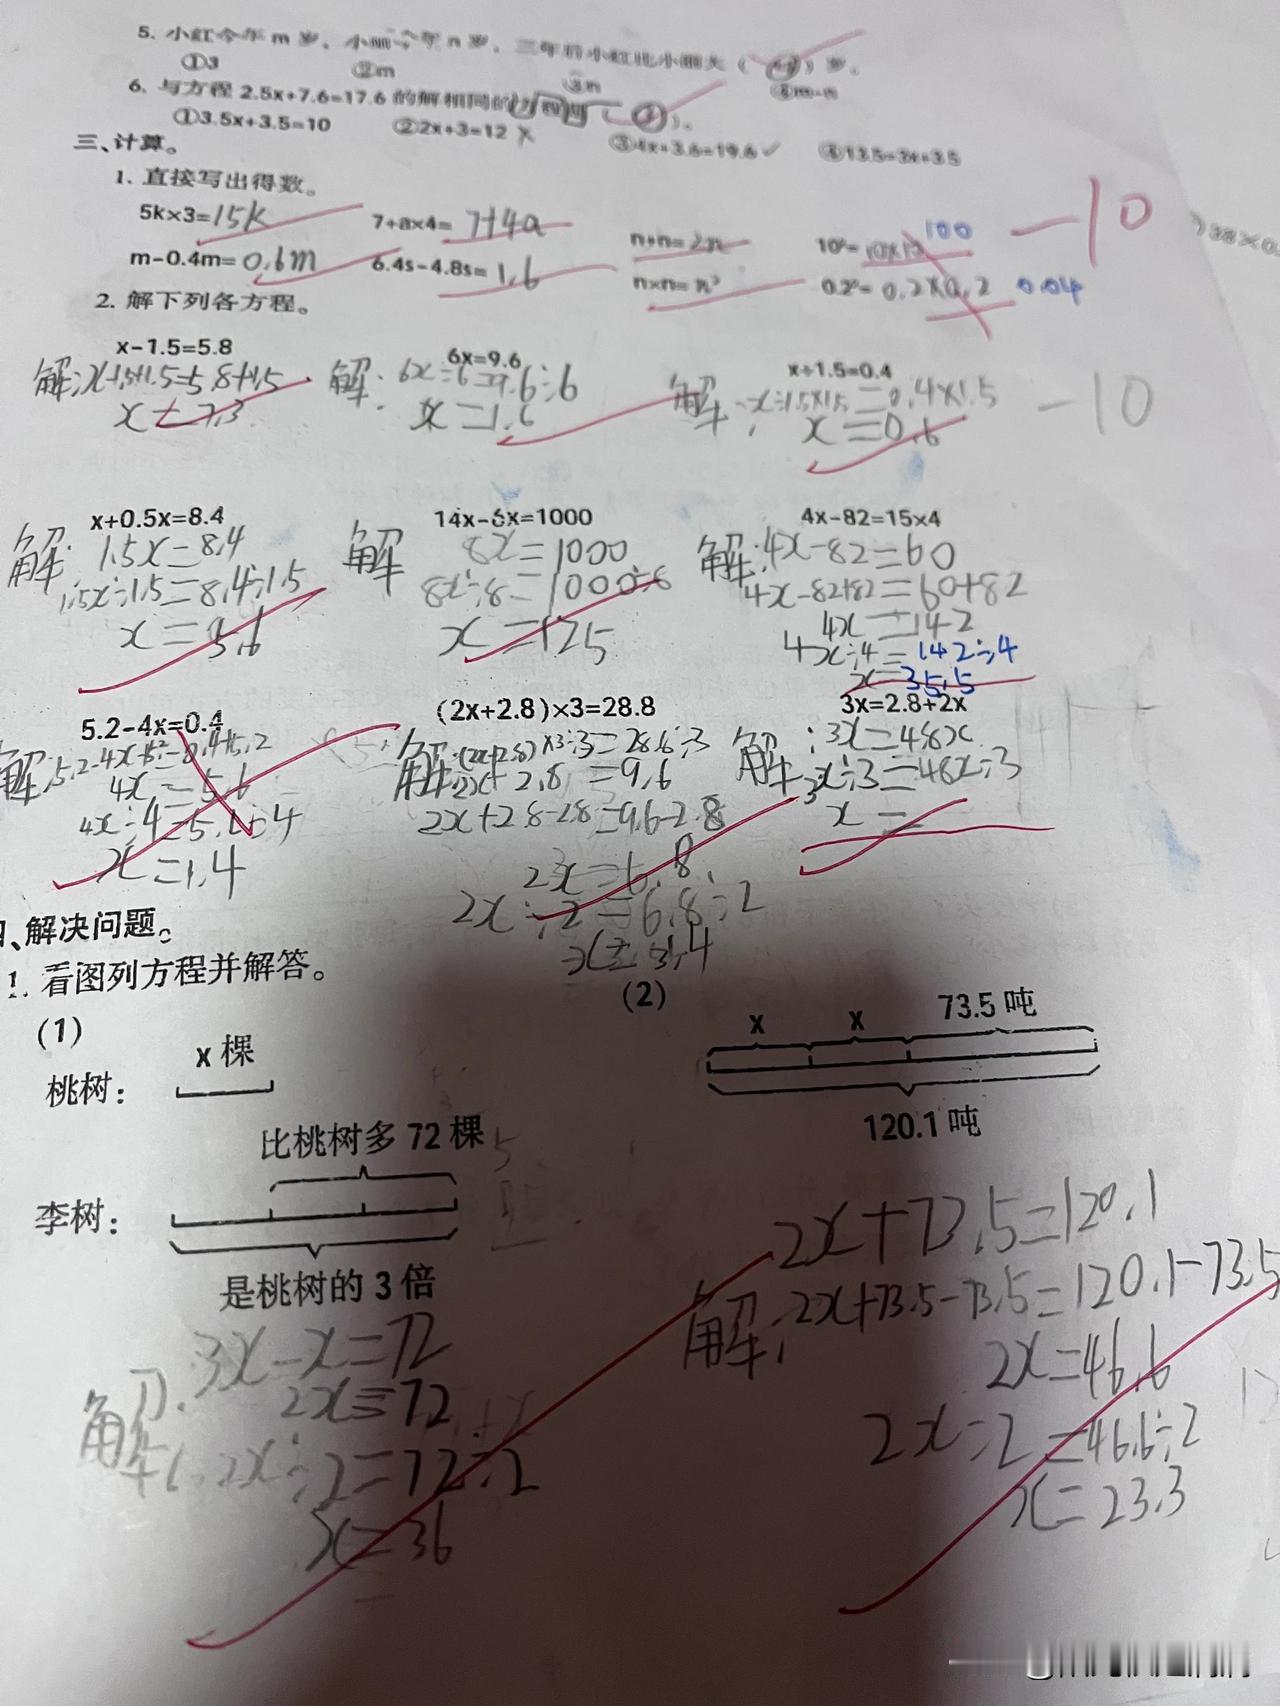 5. 小红今年 m 岁，小丽今年 n 岁，三年后小红比小丽大（ ）岁。
①3 ②m ③n ④m-n
6. 与方程 2.5x+7.6=17.6 的解相同的
①3.5x+3.5=10 ②2x+3=12 × ③4x+3.6=19.6 ✓ ④13.5=3x+3.5
三、计算。
1. 直接写出得数。
5k×3=15k 7+a×4= 7+4a n+n=2n 10²=10×10 100 -10
m-0.4m=0.6m 6.4s-4.8s=1.6 n×n=n² 0.2²=0.2×0.2 0.04
2. 解下列各方程。
x-1.5=5.8 6x=9.6 x÷1.5=0.4
解:x-1.5+1.5=5.8+1.5 解: 6x÷6=9.6÷6 解: x÷1.5×1.5=0.4×1.5 -10
x=7.3 x=1.6 x=0.6
x+0.5x=8.4 14x-6x=1000 4x-82=15×4
解: 1.5x=8.4 解 8x=1000 解:4x-82=60
1.5x÷1.5=8.4÷1.5 8x÷8=1000÷8 4x-82+82=60+82
x=5.6 x=125 4x=142
4x÷4=142÷4
x=35.5
5.2-4x=0.4 (2x+2.8)×3=28.8 3x=2.8+2x
解:5.2-4x+5.2=0.4+5.2 解:(2x+2.8)×3÷3=28.6÷3 解:3x=48x
4x=5.6 2x+2.8=9.6 3x÷3=48x÷3
4x÷4=5.6÷4 2x+2.8-2.8=9.6-2.8 x=
x=1.4 2x=6.8
2x÷2=6.8÷2
x=3.4
四、解决问题。
1. 看图列方程并解答。
(1) (2)
x 棵 x x 73.5 吨
桃树：
120.1 吨
比桃树多 72 棵
李树：
是桃树的 3 倍
3x-x=72 2x+73.5=120.1
解: 2x=72 解:2x+73.5-73.5=120.1-73.5
2x÷2=72÷2 2x=46.6
x=36 2x÷2=46.6÷2
x=23.3